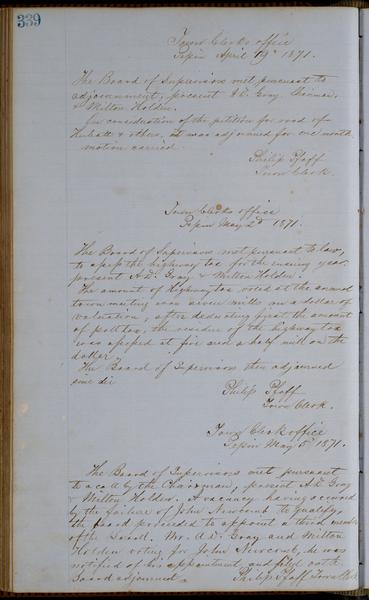 339
Town Clerks office
Pepin April 19th 1871.
The Board of Supervisors met pursuant to
adjournment, present A.D. Gray Chairman.
& Milton Holden.
In consideration of the petition for road of
& others, it was adjourned for one month
motion carried
Philip Pfaff
Town Clerk.
Town Clerks office
Pepin May 2d 1871.
The Board of Supervisors met pursuant to law,
to assess the highway tax for the ensuing year
present A.D. Gray & Milton Holden.
The amount of Highway tax voted at the annual
town meeting was seven mills on a dollar of
valuation, after deducting first the amount
of poll tax, the residue of the highway tax
was assessed at five and a half mill on the
dollar
The Board of Supervisors then adjourned
sine die
Philip Pfaff
Town Clerk.
Town Clerk office
Pepin May 5th 1871.
The Board of Supervisors met pursuant
to a call by the Chairman, present A.D. Gray
& Milton Holden. A vacancy having occurred
by the failure of John Newcomb to qualify,
the board proceeded to appoint a third member
of the board. Mr. A.D. Gray and Milton
Holden voting for John Newcomb, he was
notified of his appointment and filed oath
Board adjourned. Philip Pfaff Town Clerk